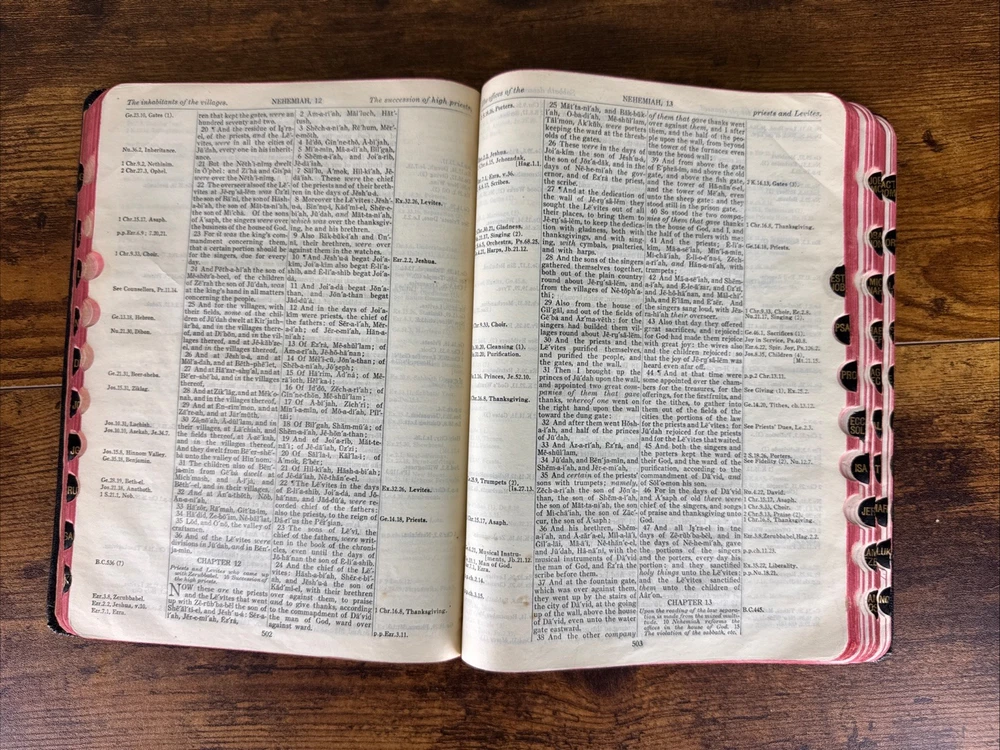 The inhabitants of the villages.
NEHEMIAH, 12
The succession of high priests.
Ge.23.10, Gates (1).
No.36.2, Inheritance.
1 Chr.9.2, Nethinim.
2 Chr.27.3, Ophel.
1 Chr.15.17, Asaph.
p.p.Ezr.4.8; 7.20,21.
1 Chr.9.33, Choir.
See Counsellors, Pr.11.14.
Ge.13.18, Hebron.
No.21.30, Dibon.
Ge.21.31, Beer-sheba.
Jos.15.31, Ziklag.
Jos.10.31, Lachish.
Jos.10.10, Azekah, Je.34.7.
Jos.15.8, Hinnom Valley.
Ge.35.18, Benjamin.
Ge.28.19, Beth-el.
Jos.21.18, Anathoth.
1 S.21.1, Nob.
B.C.536 (?)
Ezr.3.8, Zerubbabel.
Ezr.2.2, Jeshua, v.10.
Ezr.7.1, Ezra.
ren that kept the gates, were an
hundred seventy and two.
20 ¶ And the residue of Ĭṣ'ra-
el, of the priests, and the Lē'-
vītes, were in all the cities of
Jū'dah, every one in his inherit-
ance.
21 But the Nĕth'i-nĭmṣ dwelt
in Ō'phel: and Zī'ha and Gĭs'pa
were over the Nĕth'i-nĭmṣ.
22 The overseer also of the Lē'-
vītes at Jē-ru̇'să-lĕm was Ŭz'zī
the son of Bā'nī, the son of Hăsh-
a-bī'ah, the son of Măt-ta-nī'ah,
the son of Mī'chȧ. Of the sons
of Ā'saph, the singers were over
the business of the house of God.
23 For it was the king's com-
mandment concerning them,
that a certain portion should be
for the singers, due for every
day.
24 And Pĕth-a-hī'ah the son of
Me-shĕz'a-beel, of the children
of Zē'rah the son of Jū'dah, was
at the king's hand in all matters
concerning the people.
25 And for the villages, with
their fields, some of the chil-
dren of Jū'dah dwelt at Kĭr'jath-
är'bȧ, and in the villages there-
of, and at Dī'bŏn, and in the vil-
lages thereof, and at Je-kăb'ze-
el, and in the villages thereof,
26 And at Jĕsh'u-ȧ, and at
Mŏl'a-dah, and at Bĕth-phē'let,
27 And at Hā'zar-shu̇'al, and at
Bē'er-shē'bȧ, and in the villages
thereof,
28 And at Zĭk'lăg, and at Mĕk'o-
nah, and in the villages thereof,
29 And at Ĕn-rĭm'mon, and at
Zā're-ah, and at Jär'mŭth,
30 Za-nō'ah, A-dŭl'lam, and in
their villages, at Lā'chish, and
the fields thereof, at A-zē'kah,
and in the villages thereof.
And they dwelt from Bē'er-shē'-
bȧ unto the valley of Hĭn'nom.
31 The children also of Bĕn'-
ja-min from Gē'bȧ dwelt at
Mĭch'mash, and A-ī'jȧ, and
Bĕth-el, and in their villages,
32 And at Ăn'a-thŏth, Nŏb,
Ăn-a-nī'ah,
33 Hā'zôr, Rā'mah, Gĭt'ta-im,
34 Hā'dĭd, Ze-bō'im, Ne-băl'lat,
35 Lŏd, and Ō'nō, the valley of
craftsmen.
36 And of the Lē'vītes were
divisions in Jū'dah, and in Bĕn'-
ja-min.
CHAPTER 12
Priests and Levites who came up
with Zerubbabel. 10 Succession of
the high priests.
NOW these are the priests
and the Lē'vītes that went
up with Ze-rŭb'ba-bĕl the son of
Shē-ăl'tĭ-el, and Jĕsh'u-ȧ: Sĕr-a-
ī'ah, Jĕr-e-mī'ah, Ĕz'rȧ,
2 Ăm-a-rī'ah, Măl'luch, Hăt'-
tŭsh,
3 Shĕch-a-nī'ah, Rē'hum, Mĕr'-
e-mŏth,
4 Ĭd'dō, Gĭn'ne-thō, Ă-bī'jah,
5 Mī'a-mĭn, Mā-a-dī'ah, Bĭl'gah,
6 Shĕm-a-ī'ah, and Joi'a-rĭb,
Je-dā'iah,
7 Săl'lū, Ā'mŏk, Hĭl-kī'ah, Je-
dā'iah. These were the chief
of the priests and of their breth-
ren in the days of Jĕsh'u-ȧ.
8 Moreover the Lē'vītes: Jĕsh'-
u-ȧ, Bĭn'nu̇-ī, Kăd'mĭ-el, Shĕr-e-
bī'ah, Jū'dah, and Măt-ta-nī'ah,
which was over the thanksgiv-
ing, he and his brethren.
9 Also Băk-bŭk-ī'ah and Ŭn'-
nī, their brethren, were over
against them in the watches.
10 ¶ And Jĕsh'u-ȧ begat Joi'a-
kĭm, Joi'a-kĭm also begat Ē-lī'a-
shĭb, and Ē-lī'a-shĭb begat Joi'a-
dȧ,
11 And Joi'a-dȧ begat Jŏn'a-
than, and Jŏn'a-than begat
Jăd-dū'ȧ.
12 And in the days of Joi'a-
kĭm were priests, the chief of
the fathers: of Sĕr-a-ī'ah, Mĕr-
a-ī'ah; of Jĕr-e-mī'ah, Hăn-a-
nī'ah;
13 Of Ĕz'rȧ, Mĕ-shŭl'lam; of
Ăm-a-rī'ah, Jē-hō-hā'nan;
14 Of Mĕl'i-cū, Jŏn'a-than; of
Shĕb-a-nī'ah, Jō'ṣeph;
15 Of Hā'rim, Ăd'nȧ; of Mē-
rā'ioth, Hĕl'ka-ī;
16 Of Ĭd'dō, Zĕch-a-rī'ah; of
Gĭn'ne-thŏn, Mĕ-shŭl'lam;
17 Of Ă-bī'jah, Zĭch'rī; of
Mĭn'i-a-mĭn, of Mō-a-dī'ah, Pĭl'-
tāi;
18 Of Bĭl'gah, Shăm-mū'ȧ; of
Shĕm-a-ī'ah, Jē-hŏn'a-than;
19 And of Joi'a-rĭb, Măt-te-
nā'ī; of Je-dā'iah, Ŭz'zī;
20 Of Săl'la-ī, Kăl'la-ī; of
Ā'mŏk, Ē'bĕr;
21 Of Hĭl-kī'ah, Hăsh-a-bī'ah;
of Je-dā'iah, Nĕ-thăn'e-el.
22 ¶ The Lē'vītes in the days
of Ē-lī'a-shĭb, Joi'a-dȧ, and Jō-
hā'nan, and Jăd-dū'ȧ, were re-
corded chief of the fathers:
also the priests, to the reign of
Dȧ-rī'us the Pẽr'ṣian.
23 The sons of Lē'vī, the
chief of the fathers, were writ-
ten in the book of the chroni-
cles, even until the days of
Jō-hā'nan the son of Ē-lī'a-shĭb.
24 And the chief of the Lē'-
vītes: Hăsh-a-bī'ah, Shĕr-e-bī'-
ah, and Jĕsh'u-ȧ the son of
Kăd'mĭ-el, with their brethren
over against them, to praise and
to give thanks, according
to the commandment of Dā'vid
the man of God, ward over
against ward.
Ex.32.26, Levites.
Ezr.2.2, Jeshua.
Ex.32.26, Levites.
Ge.14.18, Priests.
1 Chr.16.8, Thanksgiving.
p.p.Ezr.3.11.
502
offices of the
NEHEMIAH, 13
priests and Levites.
Porters.
Jeshua.
Jehozadak,
[Hag.1.1.
Ezr., v.36.
Scribes.
Gladness.
Singing (2).
Orchestra, Ps.68.25.
Harps, Jb.21.12.
Choir.
Cleansing (1).
Purification.
Princes, Je.52.10.
Chr.16.8, Thanksgiving.
Trumpets (2),
[Is.27.13.
Chr.15.17, Asaph.
Musical Instru-
ments, Jb.21.12.
Man of God.
Ezra.
25 Măt'ta-nī'ah, and Băk-bŭk-
ī'ah, Ō-ba-dī'ah, Mĕ-shŭl'lam,
Tăl'mon, Ăk'kŭb, were porters
keeping the ward at the thresh-
olds of the gates.
26 These were in the days of
Joi'a-kim the son of Jĕsh'u-ȧ,
the son of Jŏz'a-dăk, and in the
days of Nē-he-mī'ah the gov-
ernor, and of Ĕz'rȧ the priest,
the scribe.
27 ¶ And at the dedication of
the wall of Jē-ru̇'să-lĕm they
sought the Lē'vītes out of all
their places, to bring them to
Jē-ru̇'să-lĕm, to keep the dedica-
tion with gladness, both with
thanksgivings, and with sing-
ing, with cymbals, psalteries,
and with harps.
28 And the sons of the singers
gathered themselves together,
both out of the plain country
round about Jē-ru̇'să-lĕm, and
from the villages of Nē-tŏph'a-
thī;
29 Also from the house of
Gĭl'găl, and out of the fields of
Gē'bȧ and Ăz'ma-vĕth: for the
singers had builded them vil-
lages round about Jē-ru̇'să-lĕm.
30 And the priests and the
Lē'vītes purified themselves,
and purified the people, and
the gates, and the wall.
31 Then I brought up the
princes of Jū'dah upon the wall,
and appointed two great com-
panies of them that gave
thanks, whereof one went on
the right hand upon the wall
toward the dung gate:
32 And after them went Hŏsh-
a-ī'ah, and half of the princes
of Jū'dah,
33 And Ăz-a-rī'ah, Ĕz'rȧ, and
Mĕ-shŭl'lam,
34 Jū'dah, and Bĕn'ja-min, and
Shĕm-a-ī'ah, and Jĕr-e-mī'ah,
35 And certain of the priests'
sons with trumpets; namely,
Zĕch-a-rī'ah the son of Jŏn'a-
than, the son of Shĕm-a-ī'ah,
the son of Măt-ta-nī'ah, the son
of Mī-chā'iah, the son of Zăc'-
cur, the son of Ā'saph:
36 And his brethren, Shĕm-
a-ī'ah, and Ā-zăr'a-el, Mĭl-a-lā'ī,
Gĭl'a-lāi, Mā-ā'ī, Nĕ-thăn'e-el,
and Jū'dah, Hā-nā'nī, with the
musical instruments of Dā'vid
the man of God, and Ĕz'rȧ the
scribe before them.
37 And at the fountain gate,
which was over against them,
they went up by the stairs of
the city of Dā'vid, at the going
up of the wall, above the house
of Dā'vid, even unto the water
gate eastward.
38 And the other company
of them that gave thanks went
over against them, and I after
them, and the half of the peo-
ple upon the wall, from beyond
the tower of the furnaces even
unto the broad wall;
39 And from above the gate
of Ē'phră-im, and above the old
gate, and above the fish gate,
and the tower of Hă-năn'e-el,
and the tower of Mē'ah, even
unto the sheep gate: and they
stood still in the prison gate.
40 So stood the two compa-
nies of them that gave thanks
in the house of God, and I, and
the half of the rulers with me:
41 And the priests; Ē-lī'a-
kĭm, Mā-a-sē'iah, Mĭn'ia-min,
Mī-chā'iah, Ē-lĭ-o-ē'na-ī, Zĕch-
a-rī'ah, and Hăn-a-nī'ah, with
trumpets;
42 And Mā-a-sē'iah, and Shĕm-
a-ī'ah, and Ē-le-ā'zar, and Ŭz'zī,
and Jē-hō-hā'nan, and Măl-chī'-
jah, and Ē'lăm, and Ē'zẽr. And
the singers sang loud, with Jĕz-
ra-hī'ah their overseer.
43 Also that day they offered
great sacrifices, and rejoiced:
for God had made them rejoice
with great joy: the wives also
and the children rejoiced: so
that the joy of Jē-ru̇'să-lĕm was
heard even afar off.
44 ¶ And at that time were
some appointed over the cham-
bers for the treasures, for the
offerings, for the firstfruits, and
for the tithes, to gather into
them out of the fields of the
cities the portions of the law
for the priests and Lē'vītes: for
Jū'dah rejoiced for the priests
and for the Lē'vītes that waited.
45 And both the singers and
the porters kept the ward of
their God, and the ward of the
purification, according to the
commandment of Dā'vid, and of
Sŏl'o-mon his son.
46 For in the days of Dā'vid
and Ā'saph of old there were
chief of the singers, and songs
of praise and thanksgiving unto
God.
47 And all Ĭṣ'ra-el in the
days of Ze-rŭb'ba-bĕl, and in
the days of Nē-he-mī'ah, gave
the portions of the singers
and the porters, every day his
portion: and they sanctified
holy things unto the Lē'vītes;
and the Lē'vītes sanctified
them unto the children of
Aâr'on.
CHAPTER 13
Upon the reading of the law separa-
tion is made from the mixed multi-
tude. 10 Nehemiah reforms the
offices in the house of God. 15
The violation of the sabbath, etc.
2 K.14.13, Gates (3).
1 Chr.16.8, Thanksgiving.
Ge.14.18, Priests.
1 Chr.9.33, Choir, Ezr.2.8.
No.21.17, Singing (2).
Ge.46.1, Sacrifices (1).
Joy in Service, Ps.40.8.
Ezr.6.22, Spir. Joy, Ps.126.2.
Jos.8.35, Children (4),
[Mt.21.15.
p.p.2 Chr.13.11.
See Giving (1), Ex.25.2.
Ge.14.20, Tithes, ch.13.12.
See Priests' Dues, Le.2.3.
2 S.18.26, Porters.
See Fidelity (2), No.12.7.
Ru.4.22, David.
1 Chr.15.17, Asaph.
2 Chr.5.13, Praise (2).
1 Chr.16.8, Thanksgiving.
Ezr.3.8, Zerubbabel, Hag.2.2.
p.p.ch.11.23.
Ex.35.22, Liberality.
p.p.No.18.21.
B.C.445.
503
EST
JOB
PSA
PRO
ECC
SOL
ISA
JER
LAM